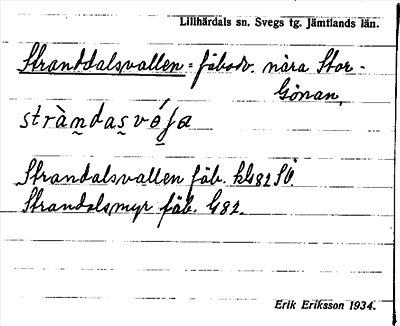 Lillhärdals sn. Svegs tg. Jämtlands län.
Stranddalsvallen = fäbodv. nära Stor-
Gönan,
stràndasvɵ́ʃa
Strandalsvallen fäb. kG82SÖ.
Strandalsmyr fäb. G82.
Erik Eriksson 1934.